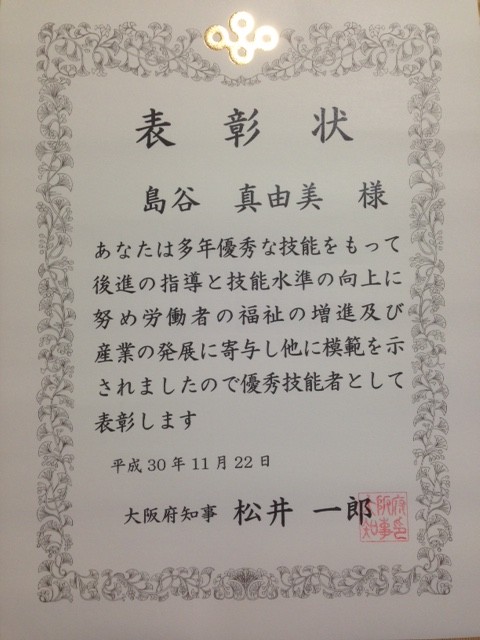 表彰状
島谷 真由美 様
あなたは多年優秀な技能をもって
後進の指導と技能水準の向上に
努め労働者の福祉の増進及び
産業の発展に寄与し他に模範を示
されましたので優秀技能者として
表彰します
平成30年11月22日
大阪府知事 松井 一郎
大阪府知事印